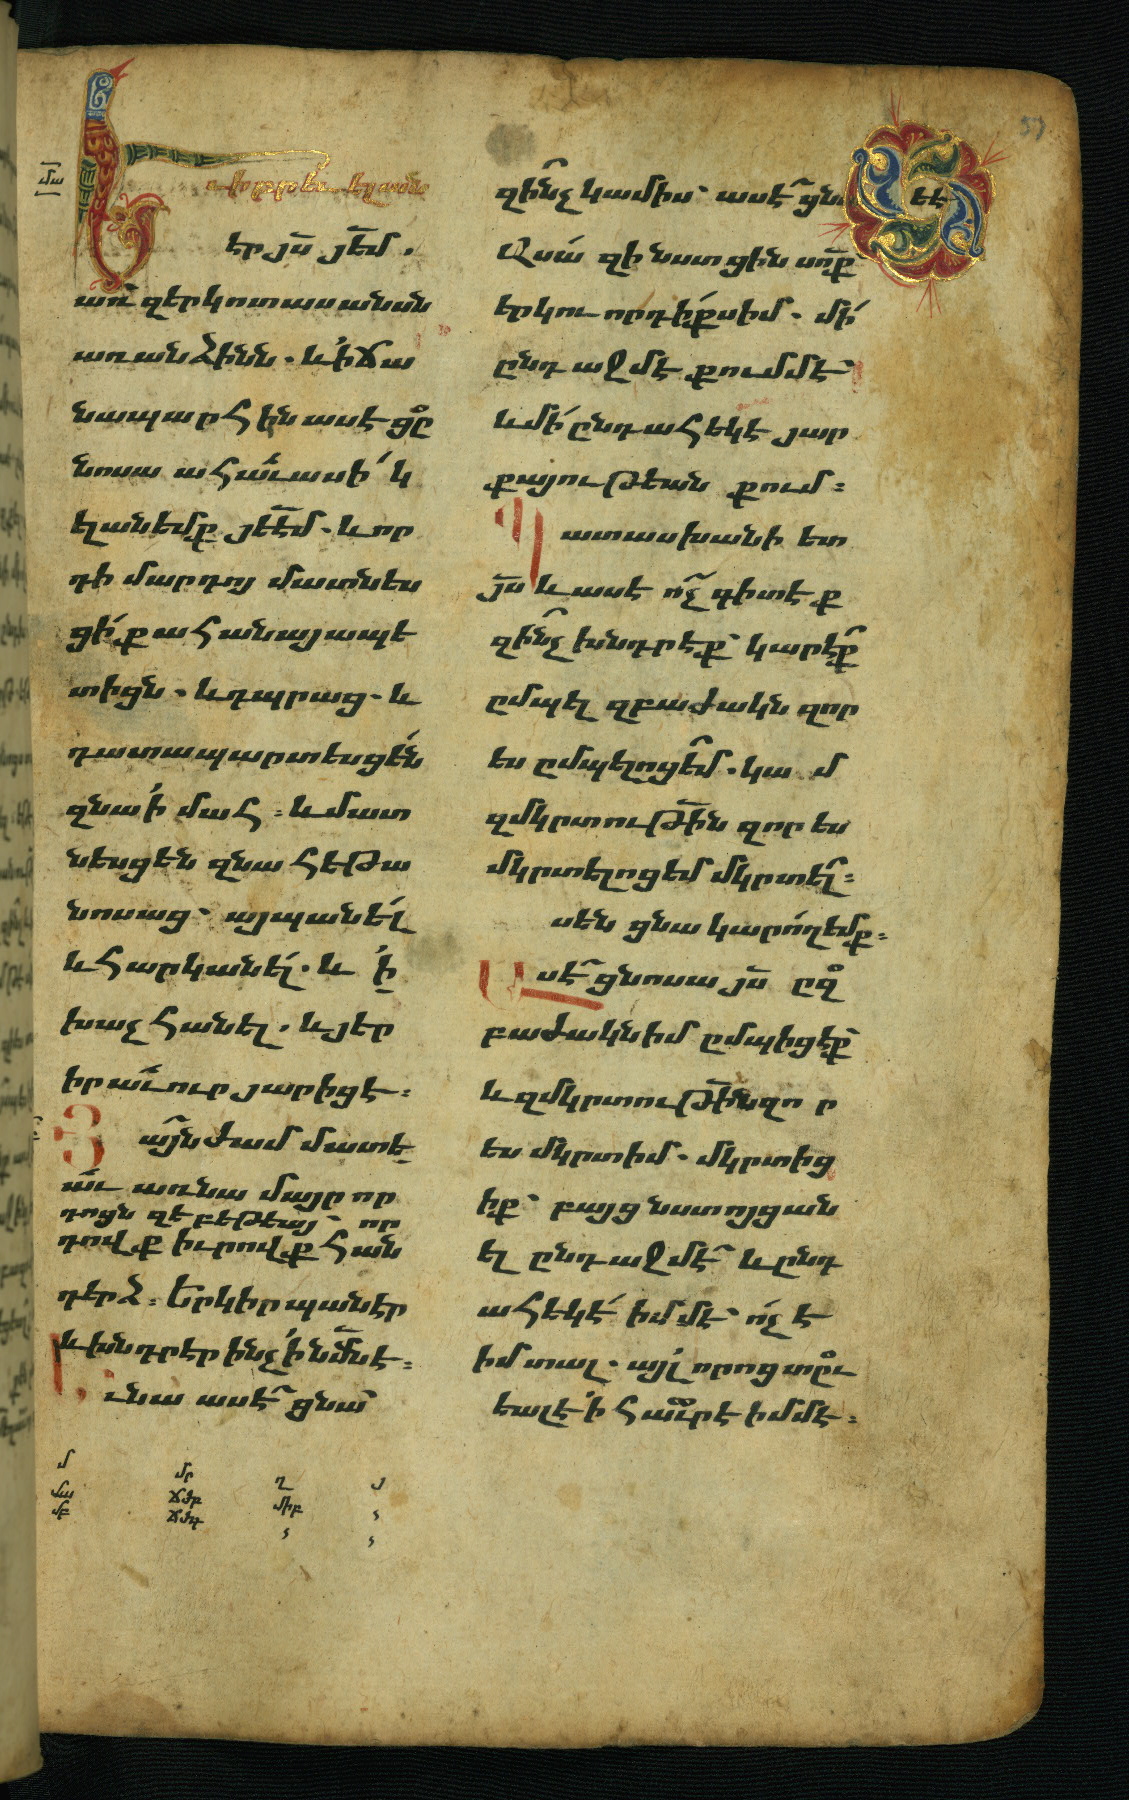 57
եե
մա
Եւ իբրեւ ելանէր յս յեմ.
առ զերկոտասանսն
առանձինն. և ի ճա
նապարհին ասէ ցը
նոսա ահաւասիկ
ելանեմք յեեմ. և որ
դի մարդոյ մատնես
ցի քահանայապե
տիցն. և դպրաց. և
դատապարտեսցեն
զնա ի մահ։ և մատ
նեսցեն զնա հեթա
նոսաց՝ այպանել
և հարկանել. և ի
խաչ հանել. և յեր
իր աւուր յարիցէ։
Յայնժամ մատե
աւ առ նա մայր որ
դոցն զեբեթեայ՝ որ
դովք իւրովք հան
դերձ։ երկիր պանէր
և խնդրէր ինչ ի նմնէ։
Եւ նա ասէ ցնա՝
զինչ կամիս՝ ասէ ցնա
Ասա զի նստցին սոք
երկու որդիքս իմ. մի
ընդ աջմէ քումմէ՝
և մի ընդ ահեկէ յար
քայութեան քում։
Պատասխանի ետ
յս և ասէ ոչ գիտէք
զինչ խնդրէք՝ կարէք
ըմպել զբաժակն զոր
ես ըմպելոցեմ. կամ
զմկրտութին զոր ես
մկրտելոցեմ մկրտել։
Ասեն ցնա կարողեմք։
Ասէ ցնոսա յս ըզ
բաժակն իմ ըմպիցէք՝
և զմկրտութինն զոր
ես մկրտիմ. մկրտից
իք՝ բայց նստուցան
ել ընդ աջմէ և ընդ
ահեկէ իմմէ՝ ոչ է
իմ տալ. այլ որոց տըւ
եալ է ի հաւրէ իմմէ։
մ մր ղ յ
մա ճժբ միբ
մբ ճժգ